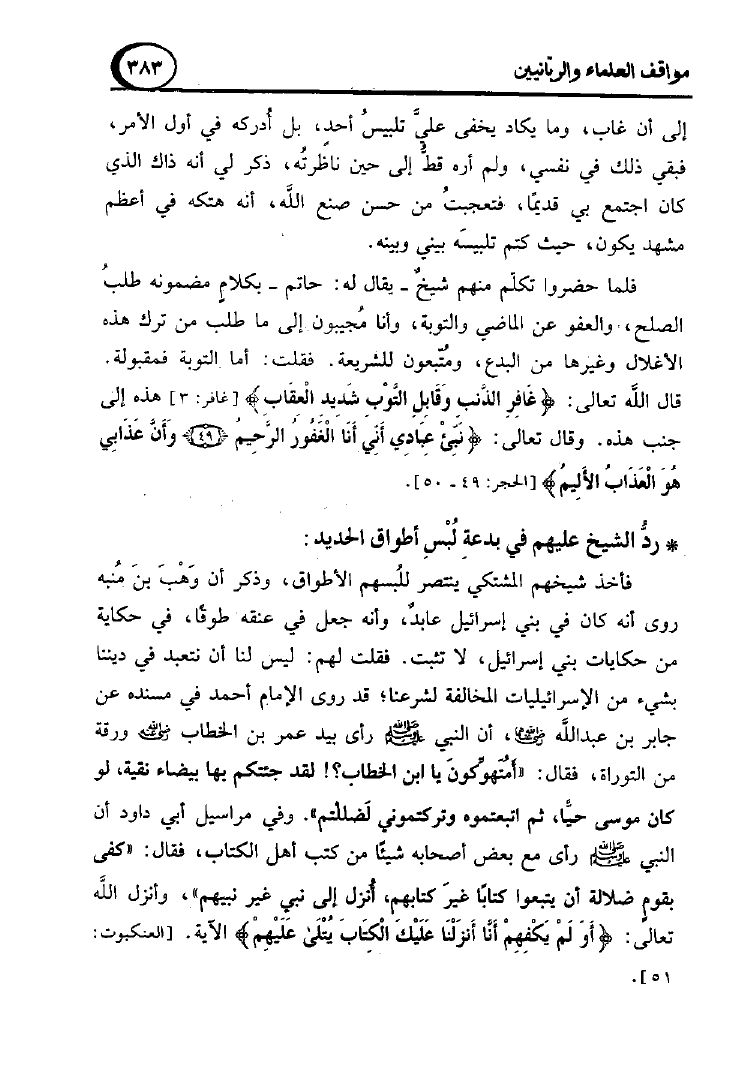 مواقف العلماء والربّانيين
٣٨٣
إلى أن غاب، وما يكاد يخفى عليَّ تلبيسُ أحدٍ، بل أُدركه في أول الأمر،
فبقي ذلك في نفسي، ولم أره قطُّ إلى حين ناظرتُه، ذكر لي أنه ذاك الذي
كان اجتمع بي قديمًا، فتعجبتُ من حسن صنع اللَّه، أنه هتكه في أعظم
مشهد يكون، حيث كتم تلبيسَه بيني وبينه.
فلما حضروا تكلّم منهم شيخٌ ـ يقال له: حاتم ـ بكلامٍ مضمونه طلبُ
الصلح، والعفو عن الماضي والتوبة، وأنا مُجيبون إلى ما طلب من ترك هذه
الأغلال وغيرها من البدع، ومُتّبعون للشريعة. فقلت: أما التوبة فمقبولة.
قال اللَّه تعالى: ﴿غَافِرِ الذَّنبِ وَقَابِلِ التَّوْبِ شَدِيدِ الْعِقَابِ﴾ [غافر: ٣] هذه إلى
جنب هذه. وقال تعالى: ﴿نَبِّئْ عِبَادِي أَنِّي أَنَا الْغَفُورُ الرَّحِيمُ (٤٩) وَأَنَّ عَذَابِي
هُوَ الْعَذَابُ الأَلِيمُ﴾ [الحجر: ٤٩ ـ ٥٠].
* ردُّ الشيخ عليهم في بدعةِ لُبْسِ أطواق الحديد :
فأخذ شيخهم المشتكي ينتصر للُبسهم الأطواق، وذكر أن وَهْبَ بنَ مُنبه
روى أنه كان في بني إسرائيل عابدٌ، وأنه جعل في عنقه طوقًا، في حكاية
من حكايات بني إسرائيل، لا تثبت. فقلت لهم: ليس لنا أن نتعبد في ديننا
بشيء من الإسرائيليات المخالفة لشرعنا؛ قد روى الإمام أحمد في مسنده عن
جابر بن عبداللَّه رضي الله عنهما، أن النبي ﷺ رأى بيد عمر بن الخطاب رضي الله عنه ورقة
من التوراة، فقال: «أَمُتَهوِّكونَ يا ابن الخطاب؟! لقد جئتكم بها بيضاء نقية، لو
كان موسى حيًّا، ثم اتبعتموه وتركتموني لَضللتم». وفي مراسيل أبي داود أن
النبي ﷺ رأى مع بعض أصحابه شيئًا من كتب أهل الكتاب، فقال: «كفى
بقومٍ ضلالة أن يتبعوا كتابًا غيرَ كتابهم، أُنزل إلى نبي غير نبيهم»، وأنزل اللَّه
تعالى: ﴿أَوَ لَمْ يَكْفِهِمْ أَنَّا أَنزَلْنَا عَلَيْكَ الْكِتَابَ يُتْلَىٰ عَلَيْهِمْ﴾ الآية. [العنكبوت:
٥١].